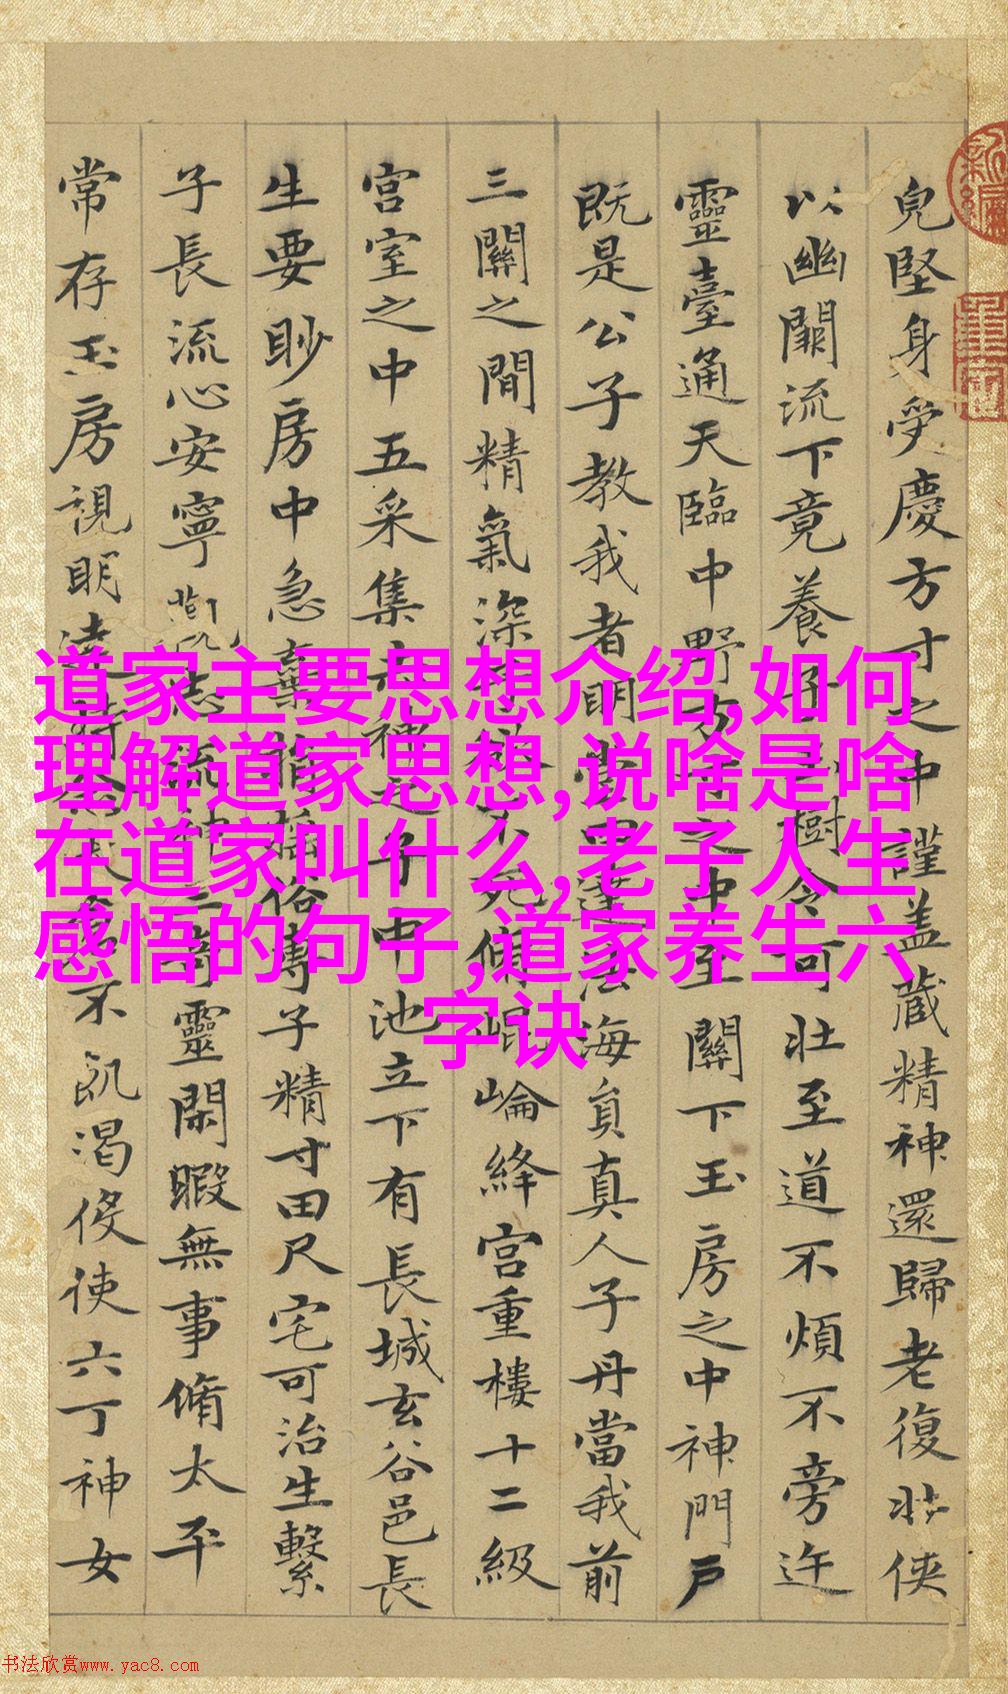 兒堅身受慶方寸之中謹盖藏精神還歸老復壯俠
以幽闕流下竟養子玉樹令可壯至道不煩不旁迕
靈臺通天臨中野方寸之中至關下玉房之中神門戶
既是公子教我者明堂四達法海員真人子丹當我前
三關之間精氣深子欲不死脩崐崘絳宮重樓十二級
宮室之中五采集赤神之子中池立下有長城玄谷邑長
生要眇房中急棄捐搖俗專子精寸田尺宅可治生繫
子長流心安寧志流神三奇靈閑暇無事脩太平
常存玉房視明達時不飢渴役使六丁神女
道家主要思想介绍,如何
理解道家思想,说啥是啥
在道家叫什么,老子人生
感悟的句子,道家养生六
字诀
书法欣赏www.yac8.com